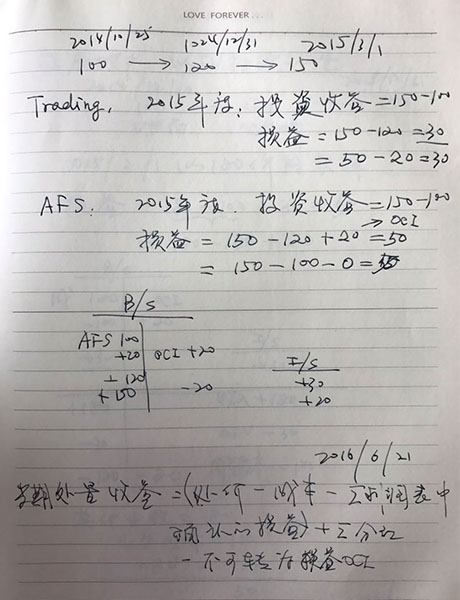 LOVE FOREVER....
2014/10/25 1024/12/31 2015/3/1
100 → 120 → 150
Trading, 2015年度: 投资收益=150-100
损益=150-120=30
=50-20=30
AFS: 2015年度. 投资收益=150-100
→OCI
损益=150-120+20=50
=150-100-0=50
B/S
AFS 100
+20 OCI +20
I/S
+120 -20 +30
+150 +20
2016/6/21
处置收益=(
损益)+Σ分红
-不可转为损益OCI